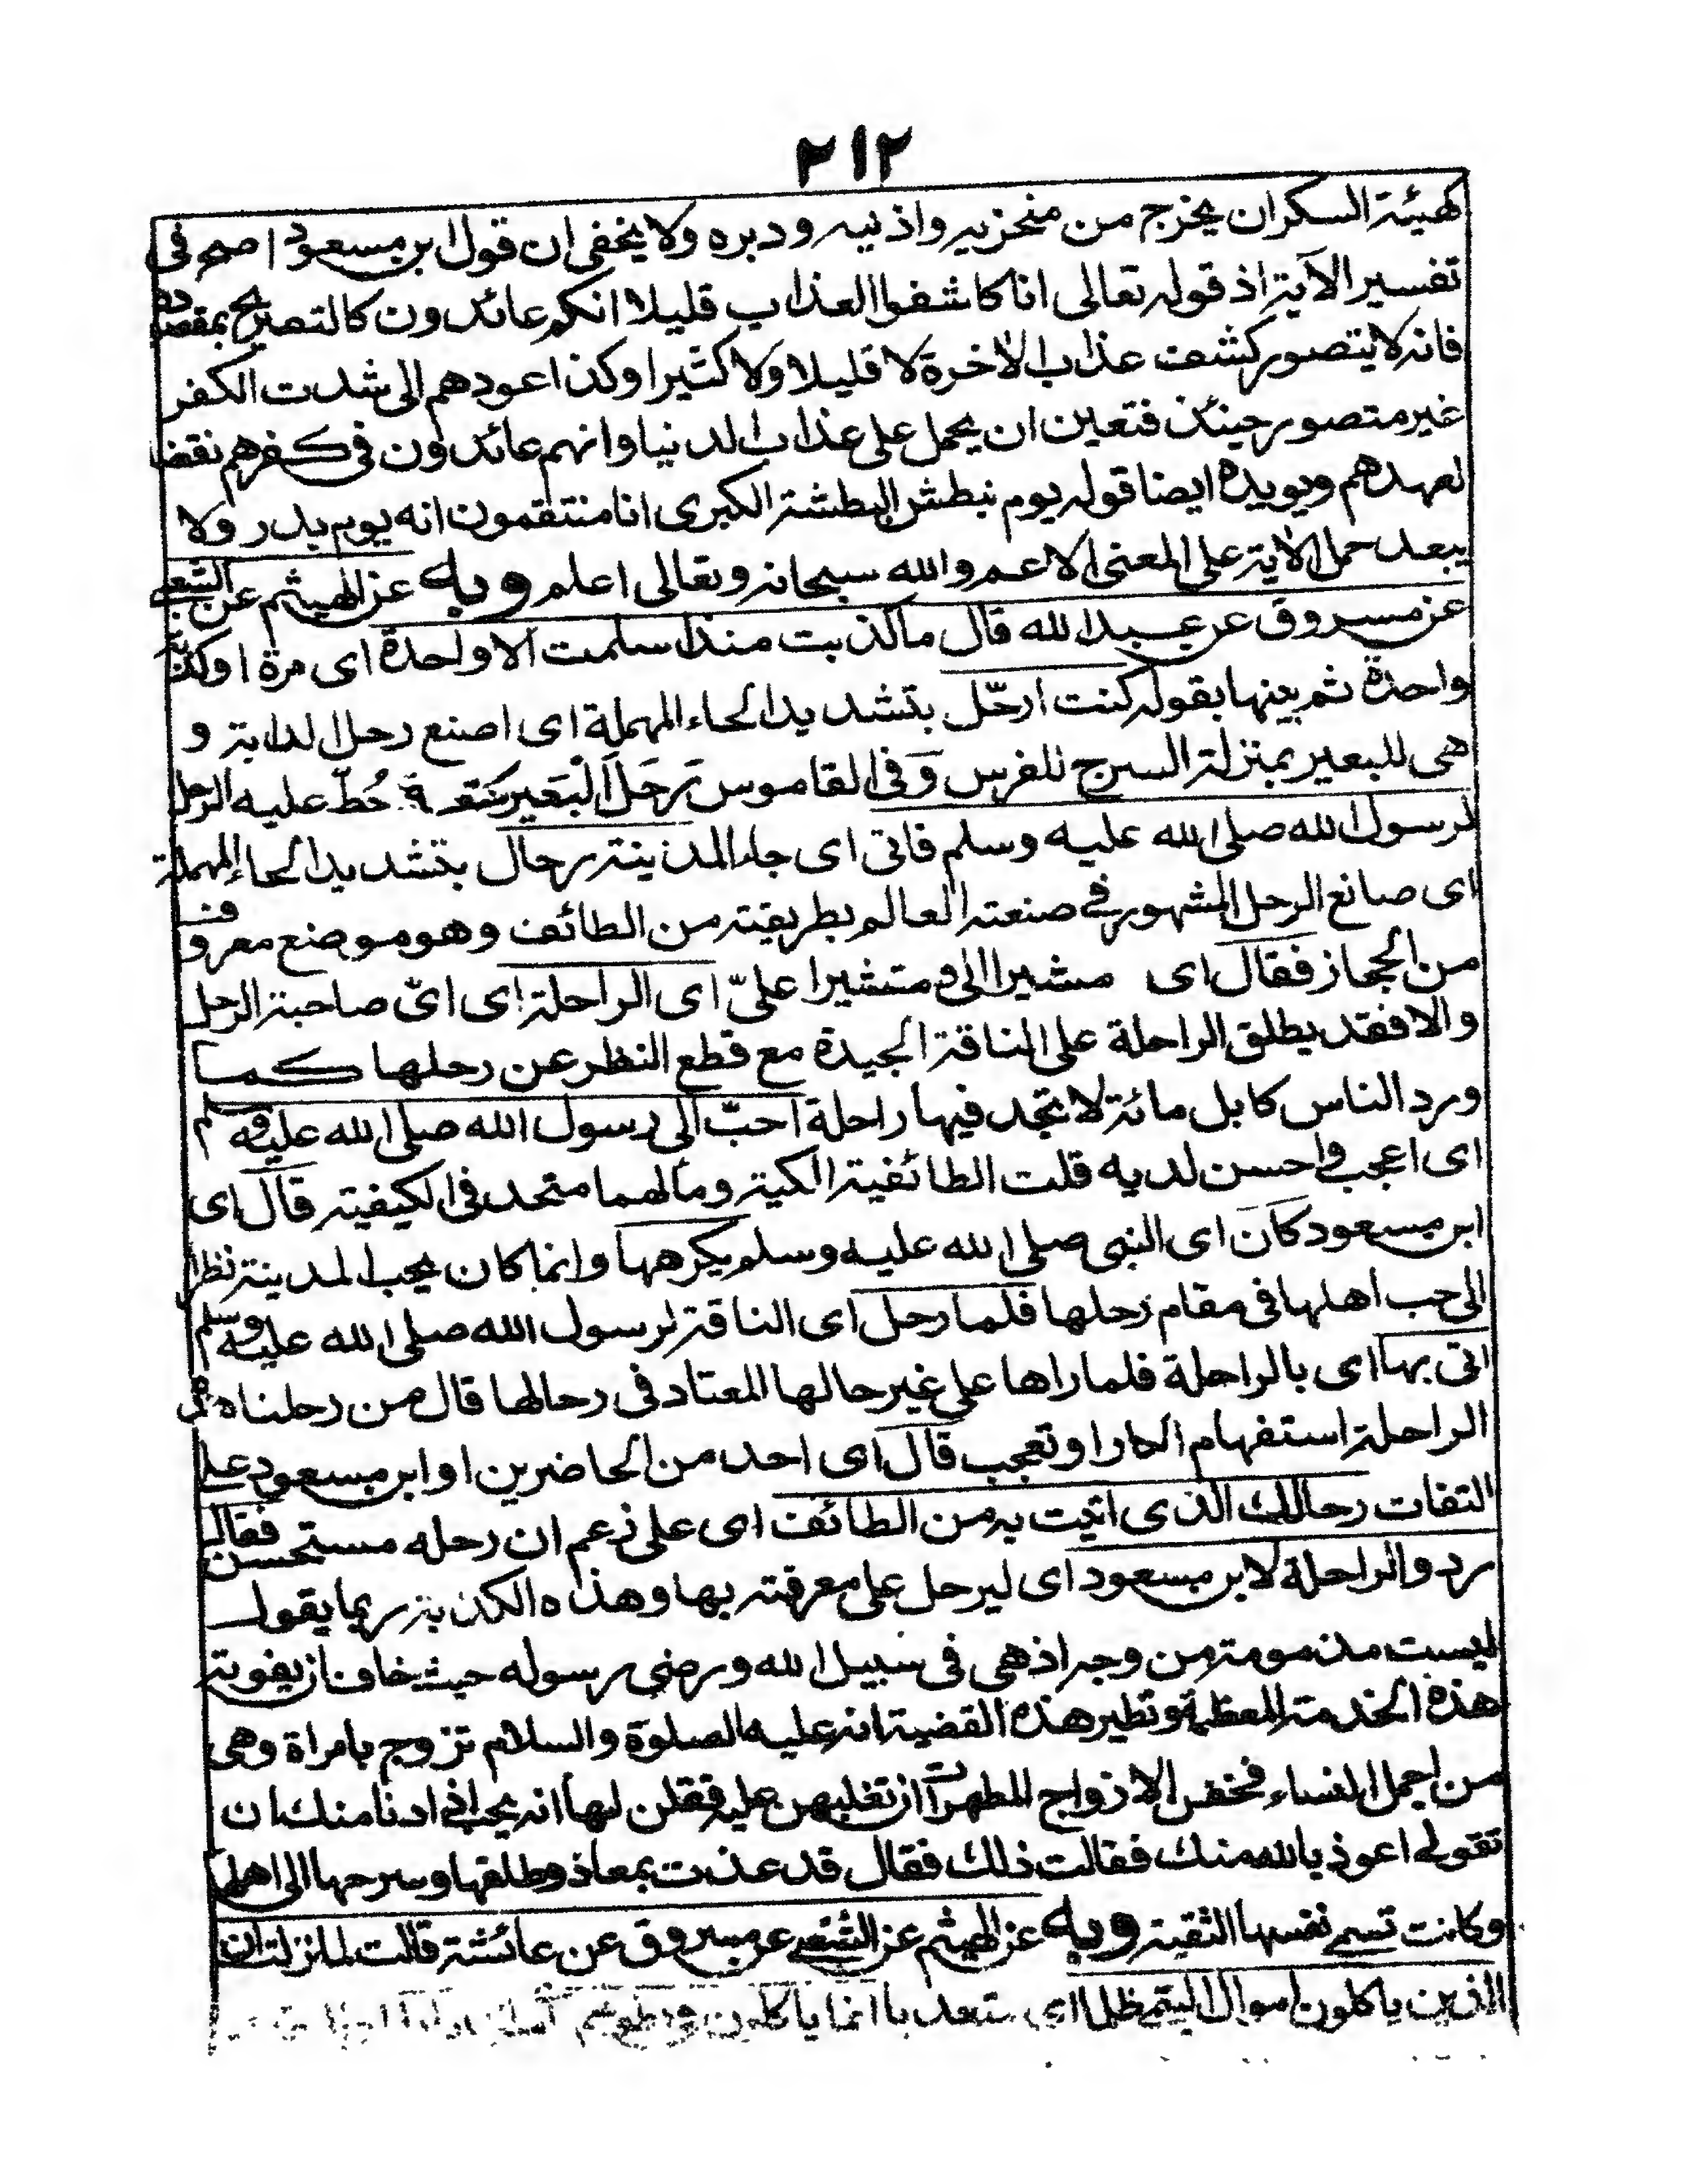 ٢١٢
كهيئة السكران يخرج من منخزيه واذنيه ودبره ولا يخفى ان قول ابن مسعود اصح فى
تفسير الآية اذ قوله تعالى انا كاشفوا العذاب قليلا انكم عائدون كالتصريح بمقصده
فانه لا يتصور كشف عذاب الاخرة لا قليلا ولا كثيرا وكذا عودهم الى شدت الكفر
غير متصور حينئذ فتعين ان يحمل على عذاب الدنيا وانهم عائدون فى كفرهم نقضا
لعهدهم ويويده ايضا قوله يوم نبطش البطشة الكبرى انا منتقمون انه يوم بدر ولا
يبعد حمل الاية على المعنى الاعم والله سبحانه وتعالى اعلم وبه عن الهيثم عن الشعبى
عن مسروق عن عبد الله قال ما كذبت منذ اسلمت الا واحدة اى مرة او كذبة
واحدة ثم بينها بقوله كنت ارحّل بتشديد الحاء المهملة اى اصنع رحل الدابة و
هى للبعير بمنزلة السرج للفرس وفى القاموس رحل البعير حُطّ عليه الرحل
لرسول الله صلى الله عليه وسلم فاتى اى جاء المدينة رحال بتشديد الحاء المهملة
اى صانع الرحل المشهور فى صنعته العالم بطريقته من الطائف وهو موضع معروف
من الحجاز فقال اى مشيرا الىّ ومتشيرا علىّ اى الراحلة اى اىّ صاحبة الرحل
والا فقد يطلق الراحلة على الناقة الجيدة مع قطع النظر عن رحلها كما
ورد الناس كابل مائة لا تجد فيها راحلة احبّ الى رسول الله صلى الله عليه وسلم
اى اعجب واحسن لديه قلت الطائفية المكية ومآلهما متحد فى الكيفية قال اى
ابن مسعود كان اى النبى صلى الله عليه وسلم يكرهها وانما كان يحب المدينة نظرا
الى حب اهلها فى مقام رحلها فلما رحل اى الناقة لرسول الله صلى الله عليه وسلم
اتى بها اى بالراحلة فلما راها على غير حالها المعتاد فى رحالها قال من رحلنا هذه
الراحلة استفهام انكار او تعجب قال اى احد من الحاضرين او ابن مسعود على
التفات رحالك الذى اتيت به من الطائف اى على زعم ان رحله مستحسن فقال
ردوا الراحلة لابن مسعود اى ليرحل على معرفته بها وهذه الكذبة ربما يقول
ليست مذمومة من وجه اذ هى فى سبيل الله ورضى رسوله حيث خاف ان يفوته
هذه الخدمة المعظمة ونظير هذه القضية انه عليه الصلوة والسلام تزوج بامراة وهى
من اجمل النساء فخفن الازواج المطهرات ان تغلبهن عليه فقلن لها انه يحب اذا دنا منك ان
تقولى اعوذ بالله منك فقالت ذلك فقال قد عذت بمعاذ وطلقها وسرحها الى اهلها
وكانت تسمى نفسها الثقية وبه عن الهيثم عن الشعبى عن مسروق عن عائشة قالت لما نزلت ان
الذين ياكلون اموال اليتمى ظلما اى ستعد با انما ياكلون فى بطونهم